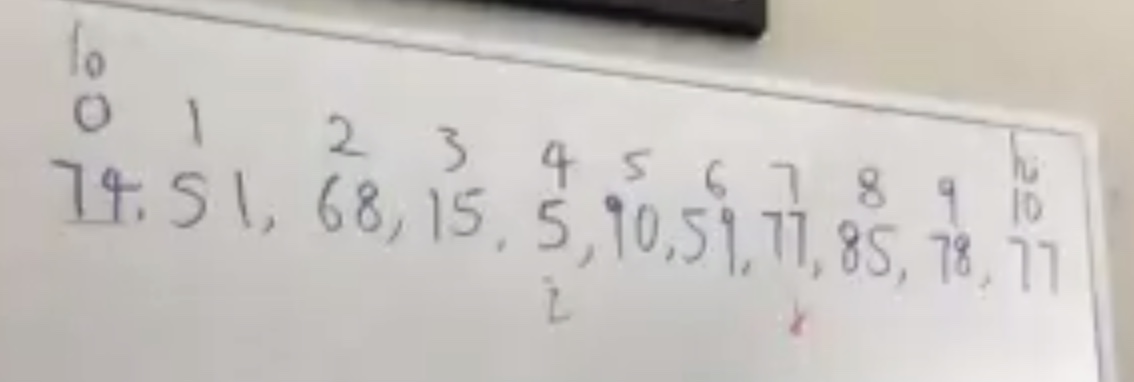 lo hi
0 1 2 3 4 5 6 7 8 9 10
74, 51, 68, 15, 5, 90, 59, 77, 85, 78, 77
i